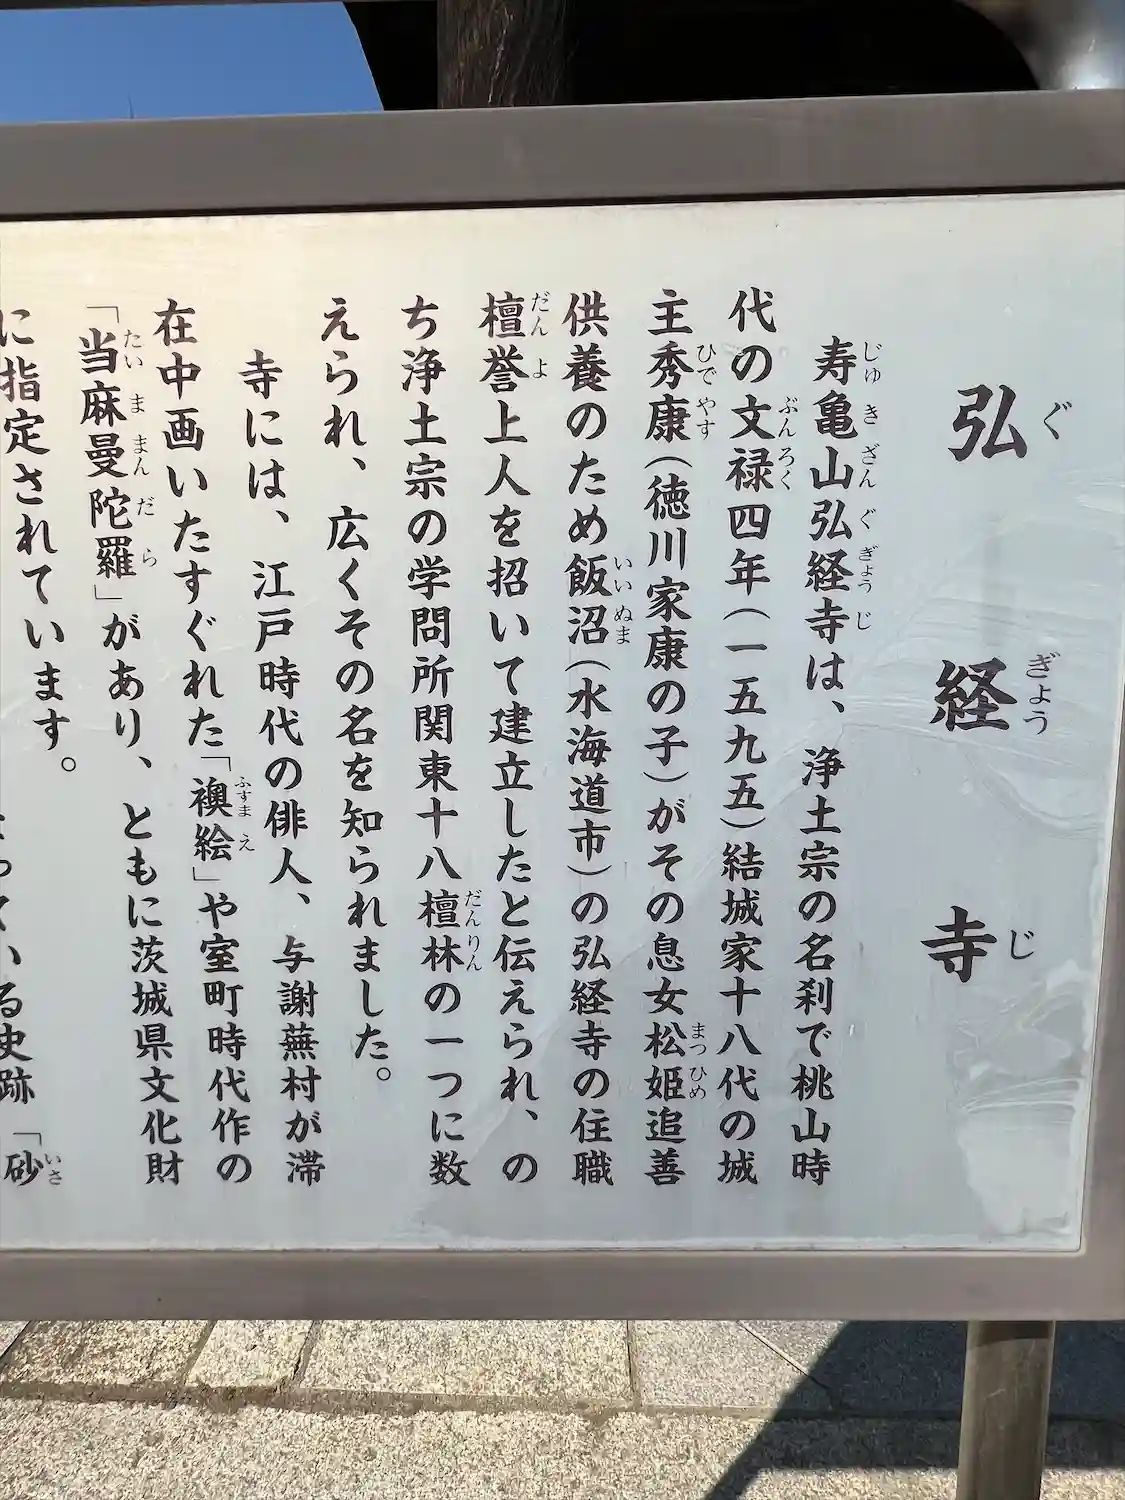 弘経寺
寿亀山弘経寺は、浄土宗の名刹で桃山時
代の文禄四年(一五九五)結城家十八代の城
主秀康(徳川家康の子)がその息女松姫追善
供養のため飯沼(水海道市)の弘経寺の住職
檀誉上人を招いて建立したと伝えられ、の
ち浄土宗の学問所関東十八檀林の一つに数
えられ、広くその名を知られました。
寺には、江戸時代の俳人、与謝蕪村が滞
在中画いたすぐれた「襖絵」や室町時代作の
「当麻曼陀羅」があり、ともに茨城県文化財
に指定されています。
る史跡「砂